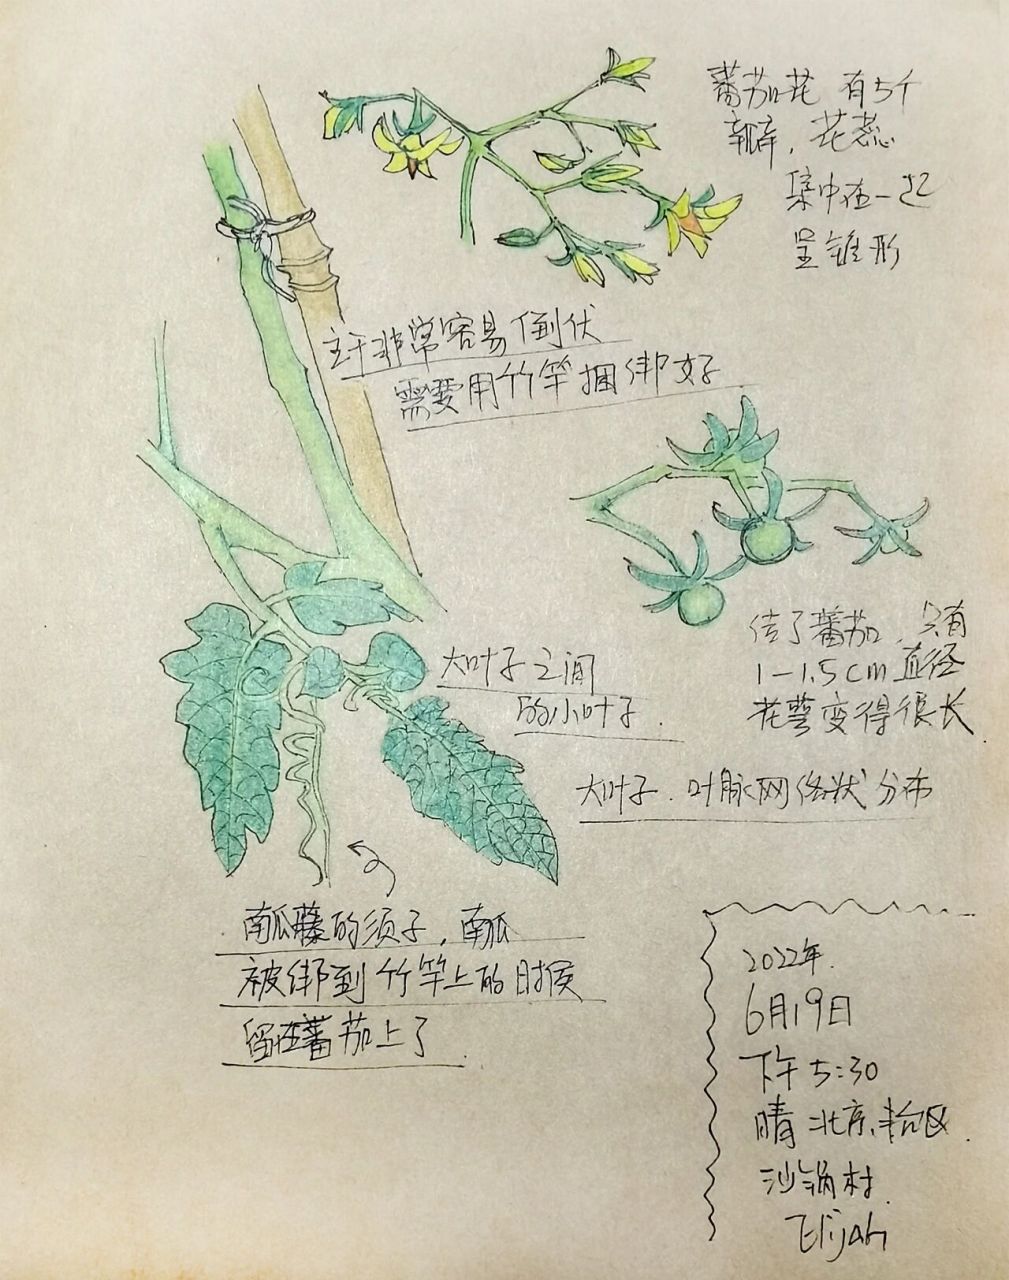 蕃茄花 有5个
瓣，花蕊
集中在一起
呈锥形
主干非常容易倒伏
需要用竹竿捆绑好
结了蕃茄，只有
1-1.5cm直径
花萼变得很长.
大叶子之间
的小叶子.
大叶子.叶脉网络状分布
南瓜藤的须子，南瓜
被绑到竹竿上的时候
留在蕃茄上了.
2022年.
6月19日
下午5:30
晴 北京.丰台区.
沙锅村.
Elijah